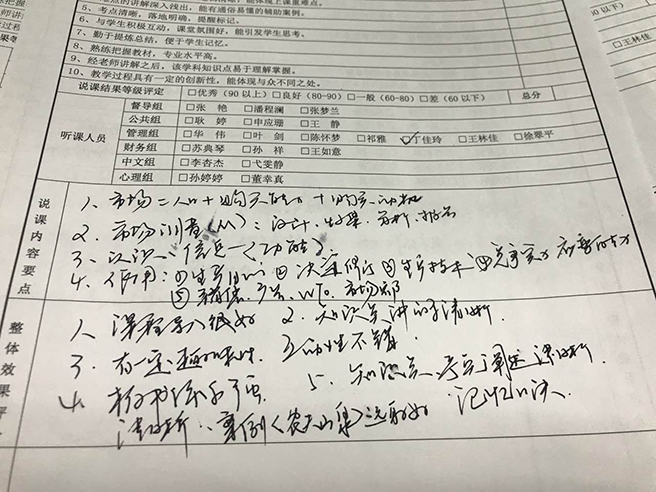 点的讲解深入浅出，能体现上课重难点。
5、考点清晰，能有通俗易懂的辅助案例。
6、与学生积极互动，课堂氛围好，能引发学生思考。
7、勤于提炼总结，便于学生记忆。
8、熟练把握教材，专业水平高。
9、经老师讲解之后，该学科知识点易于理解掌握。
10、教学过程具有一定的创新性，能体现与众不同之处。
说课结果等级评定 □优秀（90以上）□良好（80-90）□一般（60-80）□差（60以下） 总分
听课人员
督导组 □张 艳 □潘程澜 □张梦兰
公共组 □耿 婷 □申应珊 □王 静
管理组 □华 伟 □叶 剑 □陈怀梦 □祁雅 □丁佳玲 □王林佳 □徐翠平
财务组 □苏典琴 □孙 祥 □王如意
中文组 □李杏杰 □弋雯静
心理组 □孙婷婷 □董幸真
说课内容要点
1、市场=人口+购买能力+购买动机
2、市场调查(M)：设计、收集、分析、报告
3、
4、作用：① ②决策 ③生产技术 ④竞争
⑤ 广告、WTO、市场
整体效果评
1、课程导入很好 2、知识点讲的清晰
3、有一定趣味性，互动性不错
4、板书 5、知识点、考点阐述清晰
案例《农夫山泉》选取好 记忆口诀
王林佳
0以下）